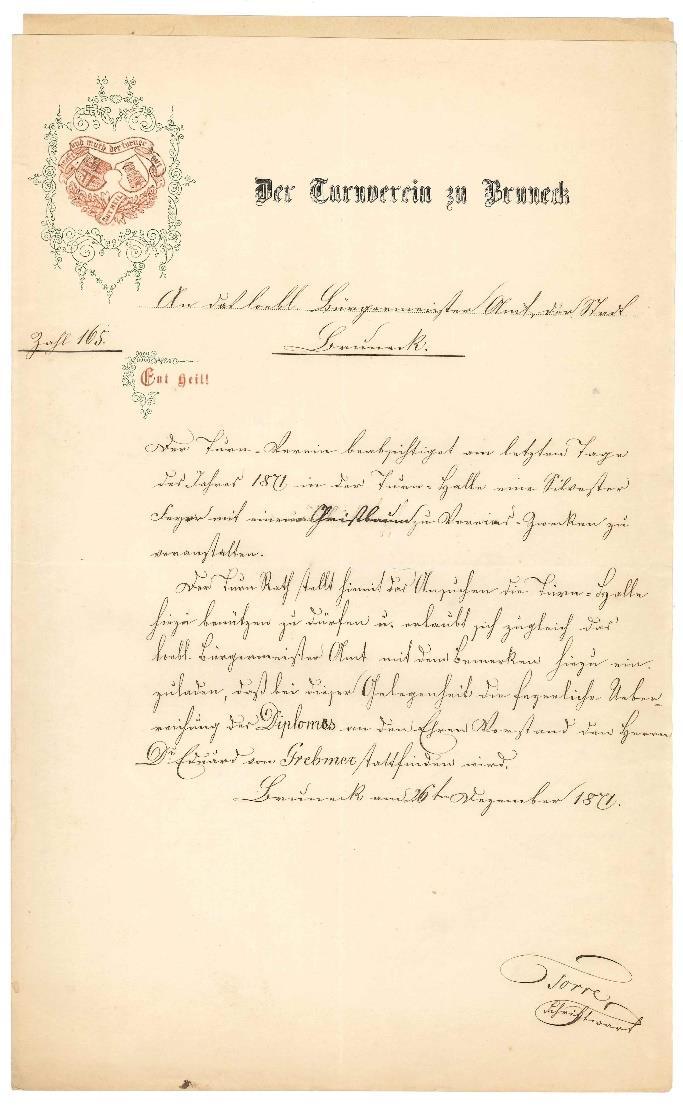 und muth der turner
Der Turnverein zu Bruneck
An das loebl. Bürgermeister Amt, der Stadt
Bruneck.
Zahl 165.
Gut Heil!
Der Turn-Verein beabsichtiget am letzten Tage
des Jahres 1871 in der Turn-Halle eine Silvester
Feyer mit einem Christbaum zu Vereins-Zwecken zu
veranstalten.
Der Turn Rath stellt hiemit das Ansuchen die Turn-Halle
hiezu benützen zu dürfen u. erlaubt sich zugleich das
loebl. Bürgermeister Amt mit dem Bemerken hiezu ein-
zuladen, daß bei dieser Gelegenheit die feyerliche Ueber-
reichung des Diplomes an den Ehren Vorstand den Herrn
Dr. Eduard von Grebmer stattfinden wird.
Bruneck am 26t Dezember 1871.
Torre,
Schriftwart